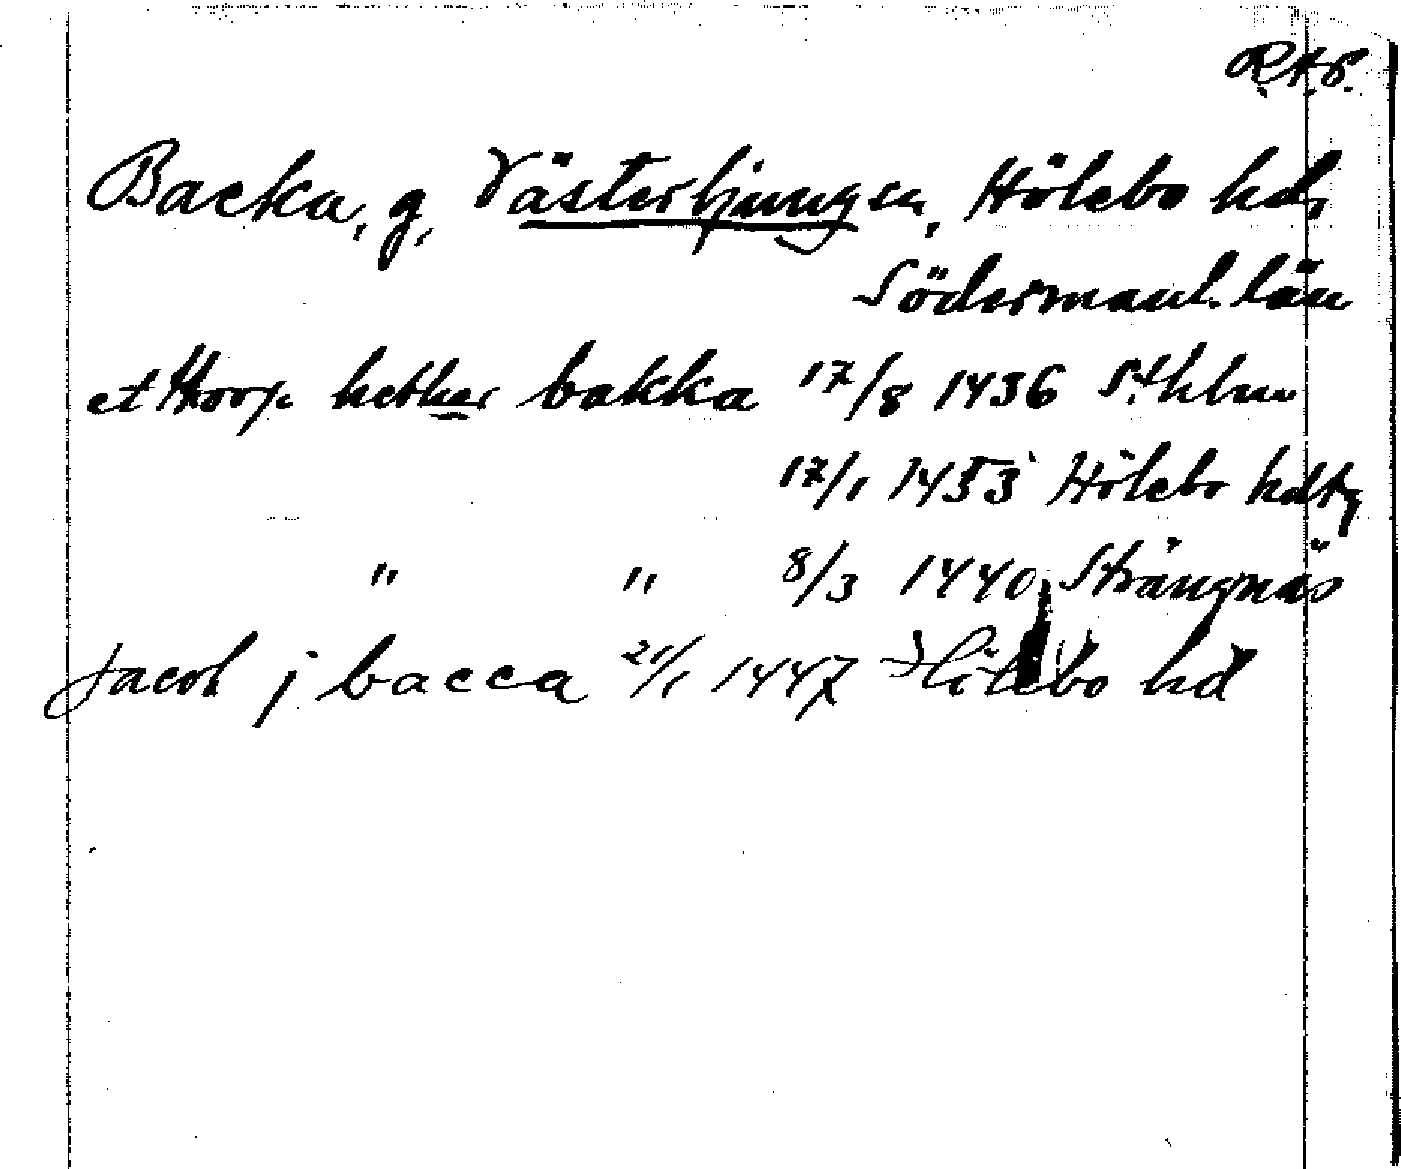 R.A.P.
Backa, g, Västerljung sn, Hölebo hd,
Södermanl. län
et thorp hether bakka 17/8 1436 Sthlm
17/1 1453 Hölebo hdtg
" " 8/3 1440 Strängnäs
Jacob j bacca 21/1 1447 Hölebo hd